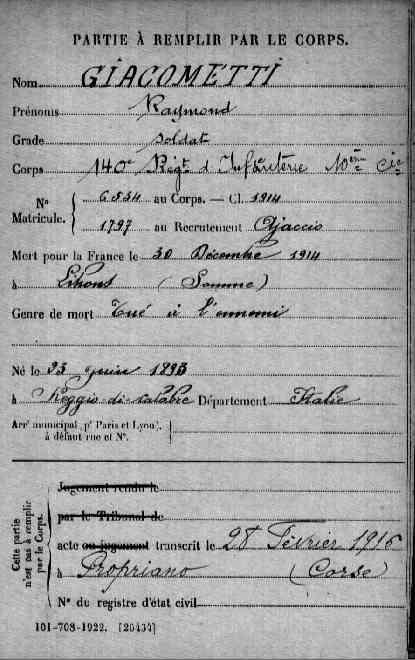 PARTIE À REMPLIR PAR LE CORPS.
Nom GIACOMETTI
Prénoms Raymond
Grade soldat
Corps 140e Régt d'Infanterie 10ème Cie
Nº Matricule. 6534 au Corps. — Cl. 1914
1797 au Recrutement Ajaccio
Mort pour la France le 30 Décembre 1914
à Lihons (Somme)
Genre de mort Tué à l'ennemi
Né le 23 Juin 1893
à Reggio di Calabre Département Italie
Arrt municipal (pr Paris et Lyon),
à défaut rue et Nº.
Cette partie
n'est pas à remplir
par le Corps.
Jugement rendu le
par le Tribunal de
acte ou jugement transcrit le 28 Février 1916
à Propriano (Corse)
Nº du registre d'état civil
101-708-1922. [26434]